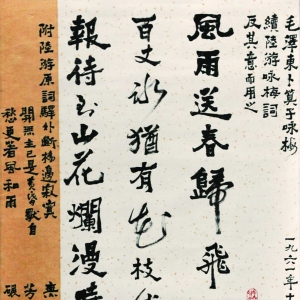 毛澤東卜算子咏梅
讀陸游咏梅詞
反其意而用之
一九六一年十
風雨送春歸飛
百丈冰猶有花枝
報待到山花爛漫時
附陸游原詞驛外斷橋邊寂寞
開無主已是黃昏獨自
愁更著風和雨
無
芳
碾